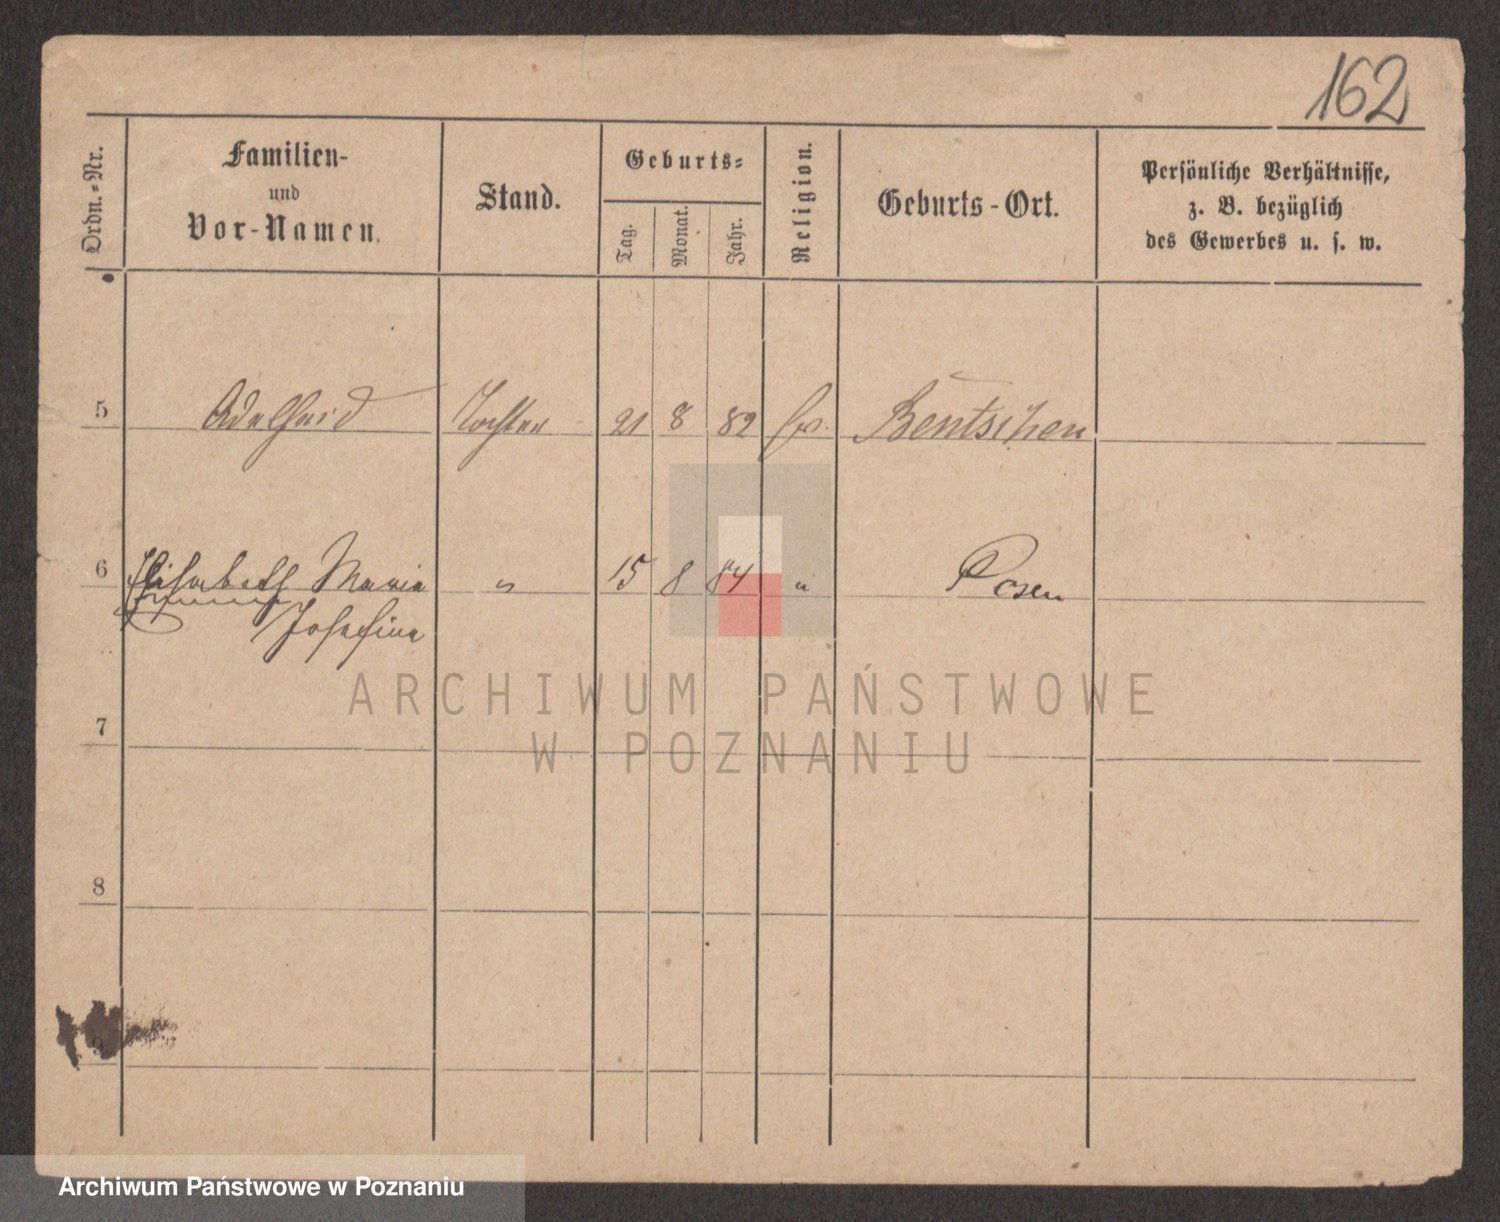 162
Ordn.-Nr.
Familien-
und
Vor-Namen.
Stand.
Geburts-
Tag.
Monat.
Jahr.
Religion.
Geburts-Ort.
Persönliche Verhältnisse,
z. B. bezüglich
des Gewerbes u. s. w.
5 Adelheid Tochter 21 8 82 Bentschen
6 Elisabeth Maria " 15 8 84 " Posen
Josefine
7
8
9
ARCHIWUM PAŃSTWOWE
W POZNANIU
Archiwum Państwowe w Poznaniu